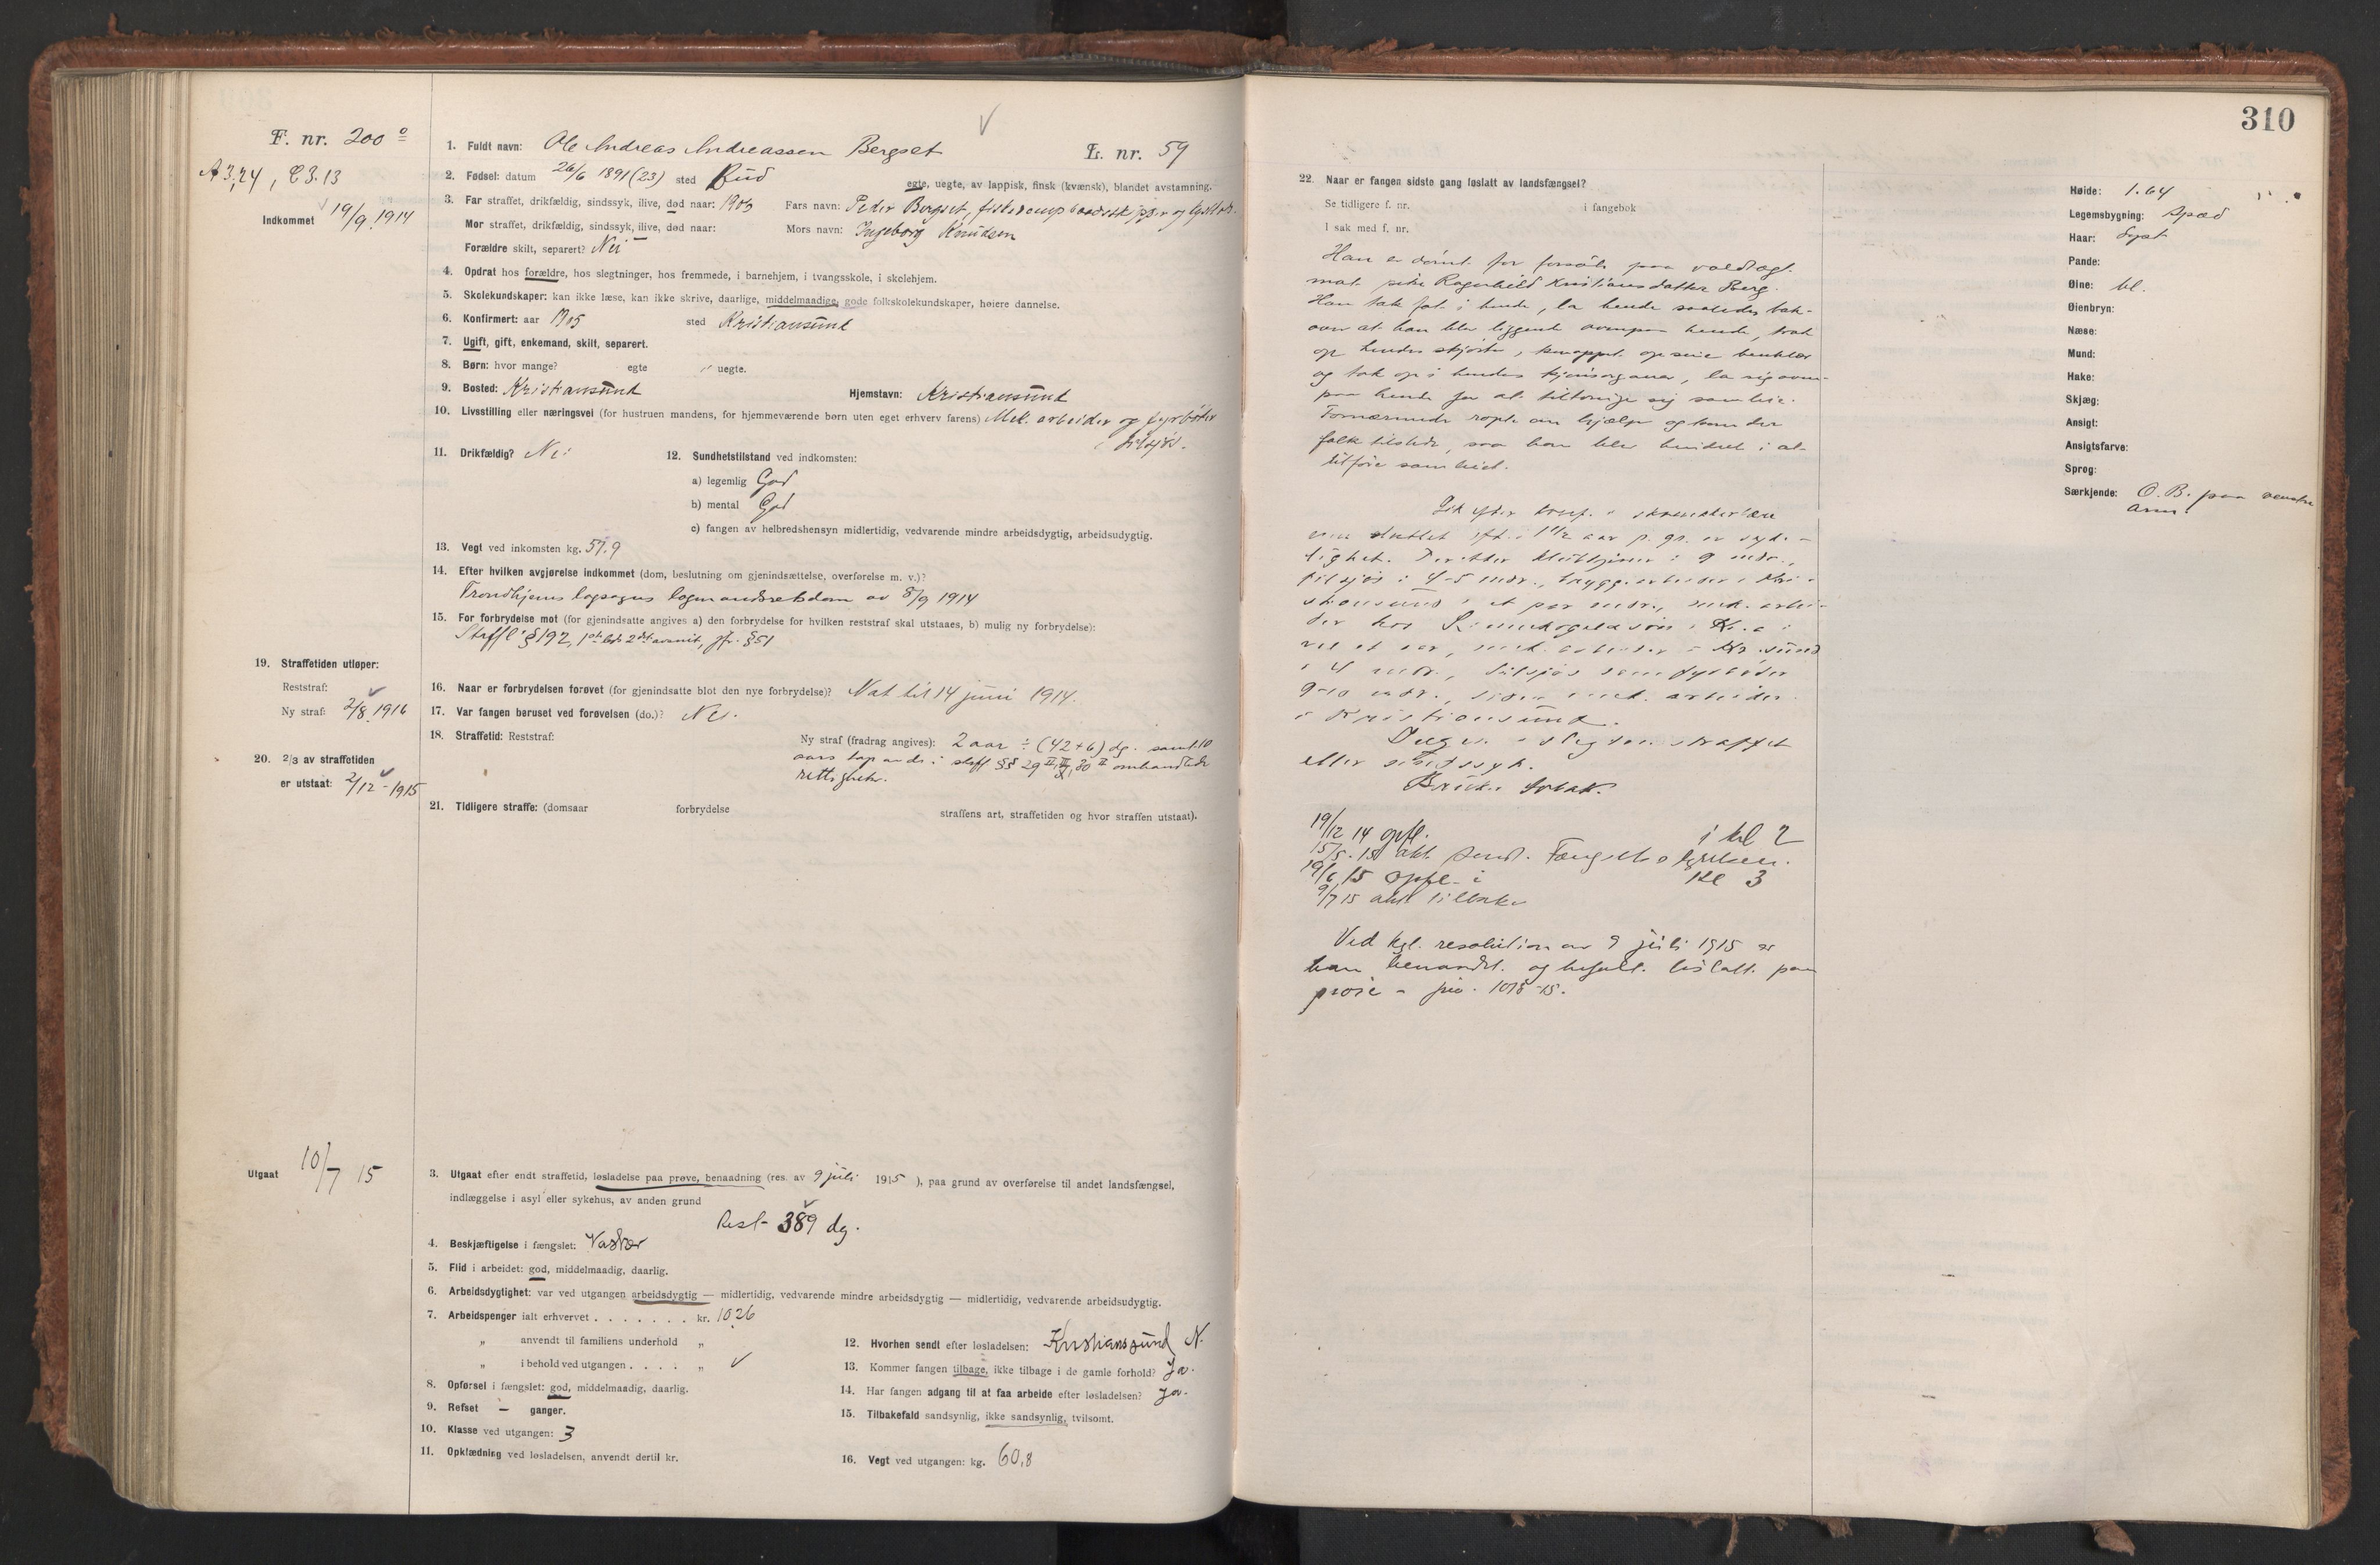 F. nr. 200 o
A 3,24, C 3.13
Indkommet 19/9 1914
1. Fuldt navn: Ole Andreas Andreassen Bergset L. nr. 59
2. Fødsel: datum 26/6 1891 (23) sted Bud egte, uegte, av lappisk, finsk (kvænsk), blandet avstamning.
3. Far straffet, drikfældig, sindssyk, ilive, død naar: 1905 Fars navn: Peder Bergset,
Mor straffet, drikfældig, sindssyk, ilive, død naar: Mors navn: Ingeborg Knudsen
Forældre skilt, separert? Nei
4. Opdrat hos forældre, hos slegtninger, hos fremmede, i barnehjem, i tvangsskole, i skolehjem.
5. Skolekundskaper: kan ikke læse, kan ikke skrive, daarlige, middelmaadige, gode folkskolekundskaper, høiere dannelse.
6. Konfirmert: aar 1905 sted Kristiansund
7. Ugift, gift, enkemand, skilt, separert.
8. Børn: hvor mange? egte " uegte.
9. Bosted: Kristiansund Hjemstavn: Kristiansund
10. Livsstilling eller næringsvei (for hustruen mandens, for hjemmeværende børn uten eget erhverv farens) Mek. arbeider og fyrbøter
tilsjøs.
11. Drikfældig? Nei 12. Sundhetstilstand ved indkomsten:
a) legemlig God
b) mental God
c) fangen av helbredshensyn midlertidig, vedvarende mindre arbeidsdygtig, arbeidsudygtig.
13. Vegt ved inkomsten kg. 57.9
14. Efter hvilken avgjørelse indkommet (dom, beslutning om gjenindsættelse, overførelse m. v.)?
Trondhjems lagsogns lagmandsretsdom av 8/9 1914
15. For forbrydelse mot (for gjenindsatte angives a) den forbrydelse for hvilken reststraf skal utstaaes, b) mulig ny forbrydelse):
Straffl. § 192, 1ste led 2det avsnit, jfr. § 51
19. Straffetiden utløper:
Reststraf:
Ny straf: 2/8 1916
16. Naar er forbrydelsen forøvet (for gjenindsatte blot den nye forbrydelse)? Nat til 14 juni 1914.
17. Var fangen beruset ved forøvelsen (do.)? Nei.
18. Straffetid: Reststraf: Ny straf (fradrag angives): 2 aar ÷ (42+6) dg. samt 10
aars tap av de i straffl §§ 29 II, III, 30 II omhandlede
rettigheter.
20. 2/3 av straffetiden
er utstaat: 2/12 - 1915
21. Tidligere straffe: (domsaar forbrydelse straffens art, straffetiden og hvor straffen utstaat).
Utgaat 10/7 15
3. Utgaat efter endt straffetid, løsladelse paa prøve, benaadning (res. av 9 juli 1915), paa grund av overførelse til andet landsfængsel,
indlæggelse i asyl eller sykehus, av anden grund
Rest 389 dg.
4. Beskjæftigelse i fængslet: Vasker
5. Flid i arbeidet: god, middelmaadig, daarlig.
6. Arbeidsdygtighet: var ved utgangen arbeidsdygtig — midlertidig, vedvarende mindre arbeidsdygtig — midlertidig, vedvarende arbeidsudygtig.
7. Arbeidspenger ialt erhvervet . . . . . . . kr. 10.26
" anvendt til familiens underhold "
" i behold ved utgangen . . . . "
8. Opførsel i fængslet: god, middelmaadig, daarlig.
9. Refset — ganger.
10. Klasse ved utgangen: 3
11. Opklædning ved løsladelsen, anvendt dertil kr.
12. Hvorhen sendt efter løsladelsen: Kristianssund N.
13. Kommer fangen tilbage, ikke tilbage i de gamle forhold? Ja.
14. Har fangen adgang til at faa arbeide efter løsladelsen? Ja.
15. Tilbakefald sandsynlig, ikke sandsynlig, tvilsomt.
16. Vegt ved utgangen: kg. 60,8
310
22. Naar er fangen sidste gang løslatt av landsfængsel?
Se tidligere f. nr. i fangebok
I sak med f. nr.
Han er dømt for forsøk paa voldtægt
mot pike Ragnhild Kristiansdatter Berg.
Han tok fat i hende, la hende saaledes bak-
over at han blev liggende ovenpaa hende, trak
op hendes skjørter, knappet op sine benklær
og tok op i hendes kjønsorganer, la sig oven-
paa hende for at tiltvinge sig samleie.
Fornærmede ropte om hjælp og kom der
folk tilstede, saa han blev hindret i at
utføre samleiet.
Gik efter konf. i skomakerlære
men sluttet efter 1 1/2 aar p. gr. av syke-
lighet. Derefter i 9 mdr.,
tilsjøs i 4-5 mdr., bryggearbeider i Kri-
stiansund i et par mdr., mek. arbei-
der hos i Kr.a i
vel et aar, mek. arbeider i Kr.sund
i 4 mdr., tilsjøs som fyrbøter
9-10 mdr., siden mek. arbeider
i Kristiansund.
Ingen i slegten straffet
eller sindssyk.
Bruker tobak.
19/12 14 opfl. i kl 2
15/5. 15 akt. sendt. Fængselsstyrelsen.
19/6 15 opfl. i kl 3
9/7 15 akt tilbake
Ved kgl. resolution av 9 juli 1915 er
han benaadet og befalt løslatt paa
prøve - jno. 1078-15.
Høide: 1.64
Legemsbygning: Spæd
Haar: Lyst
Pande:
Øine: bl.
Øienbryn:
Næse:
Mund:
Hake:
Skjæg:
Ansigt:
Ansigtsfarve:
Sprog:
Særkjende: O. B. paa venstre
arm.